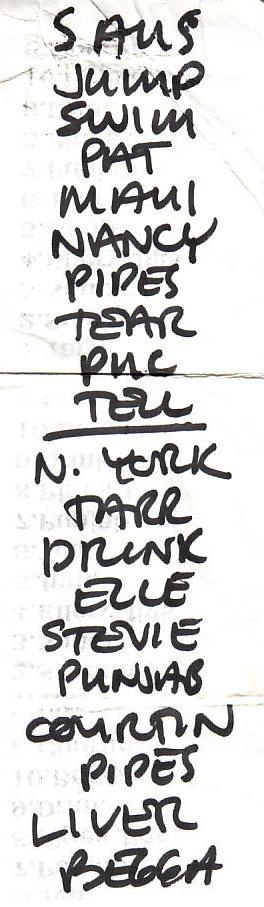 SAUS
JUMP
SWIM
PAT
MAUI
NANCY
PIPES
TEAR
PUC
TELL
N. YORK
TARR
DRUNK
ELLE
STEVIE
PUNJAB
COURTIN
PIPES
LIVER
BEGGA